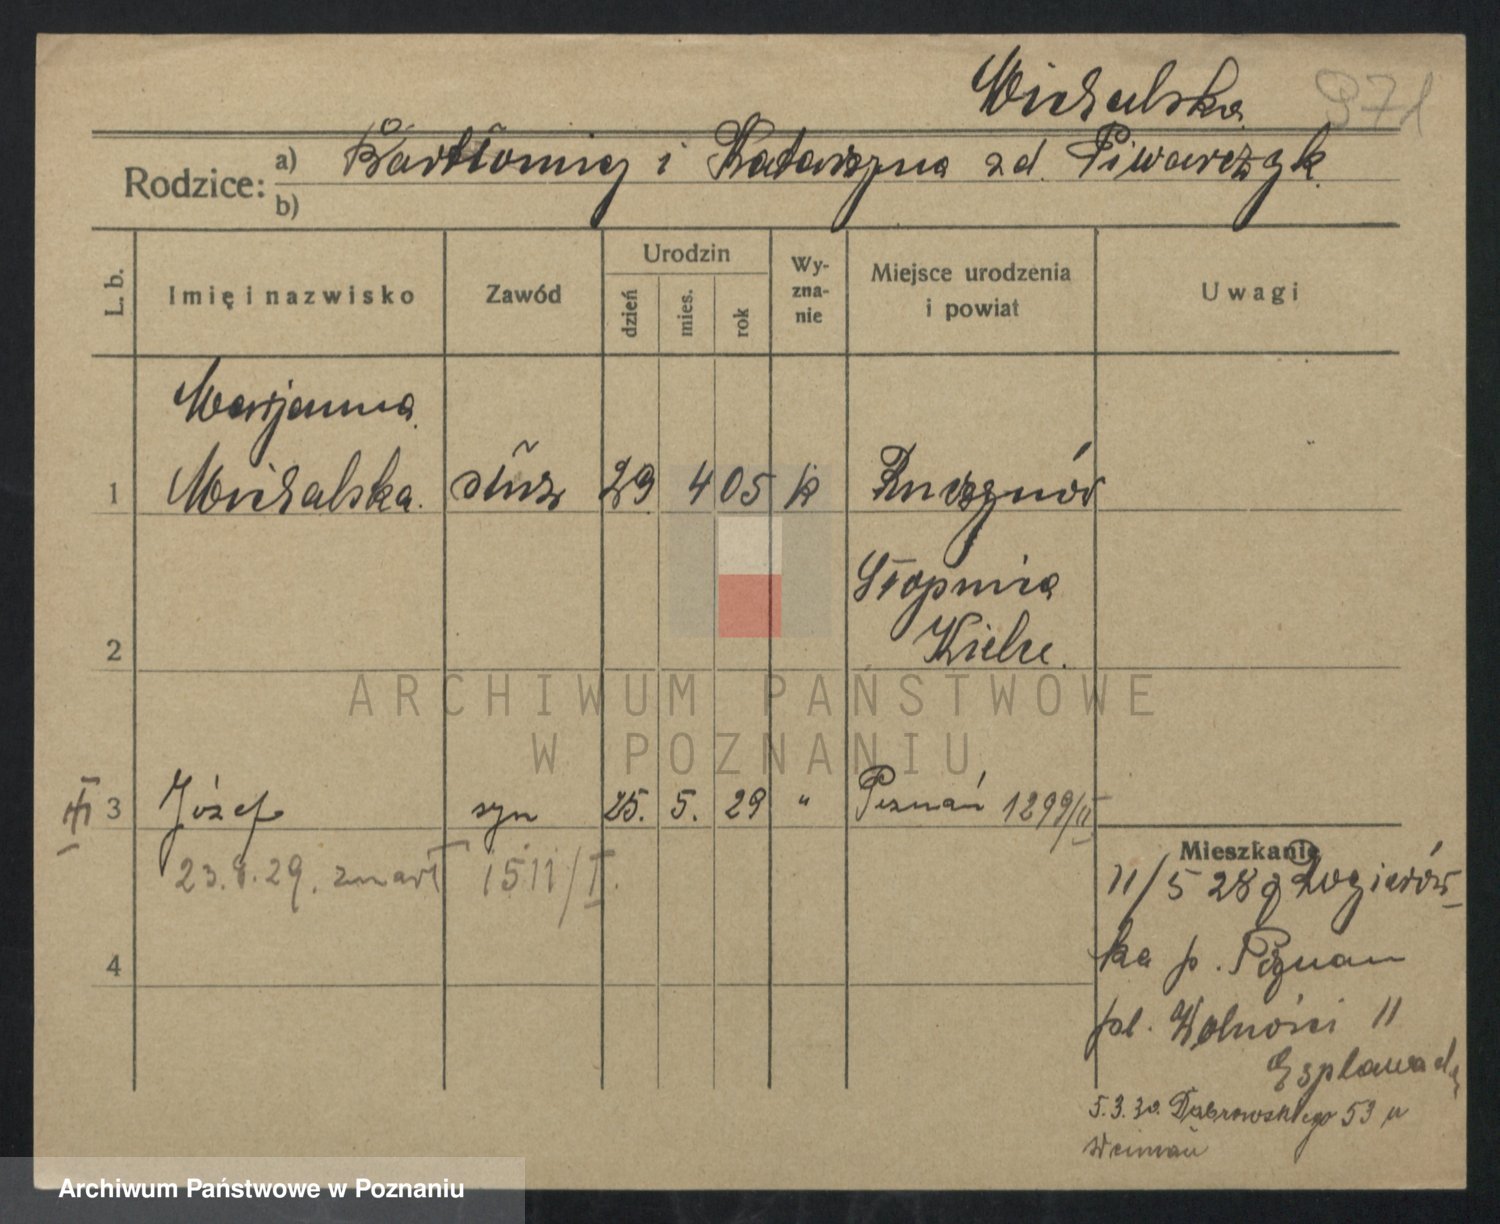 Michalska 971
Rodzice: a) Bartłomiej i Katarzyna zd. Piwarczyk
b)
L. b.
Imię i nazwisko
Zawód
Urodzin
dzień
mies.
rok
Wy-
zna-
nie
Miejsce urodzenia
i powiat
Uwagi
Marjanna
1 Michalska. służ 29 4 05 k
Stopnica
2 Kielce.
ARCHIWUM PAŃSTWOWE
W POZNANIU
3 Józef syn 25. 5. 29 " Poznań 1299/II
23.8.29. zmarł 1511/I.
4
Mieszkanie
11/5 28 z
ka p. Poznań
pl. Wolności 11
Esplanada
5.3.30. Dąbrowskiego 53 u
Archiwum Państwowe w Poznaniu